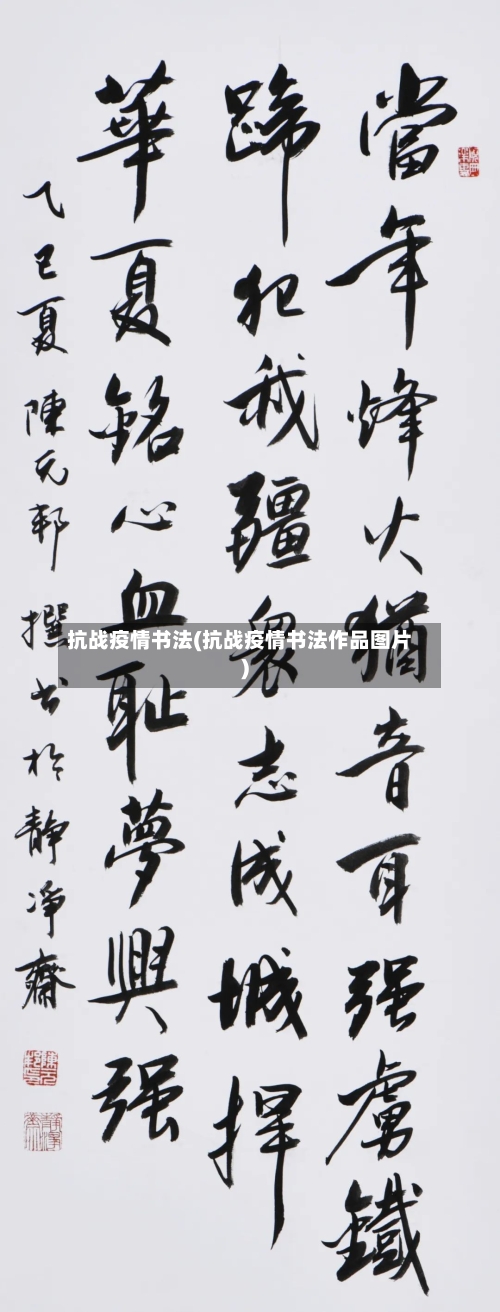 當年烽火猶音耳强虜鐵
蹄犯我疆衆志成城捍
華夏銘心血恥夢興强
乙巳夏陳元邦撰书於靜净齋
抗战疫情书法(抗战疫情书法作品图片
)